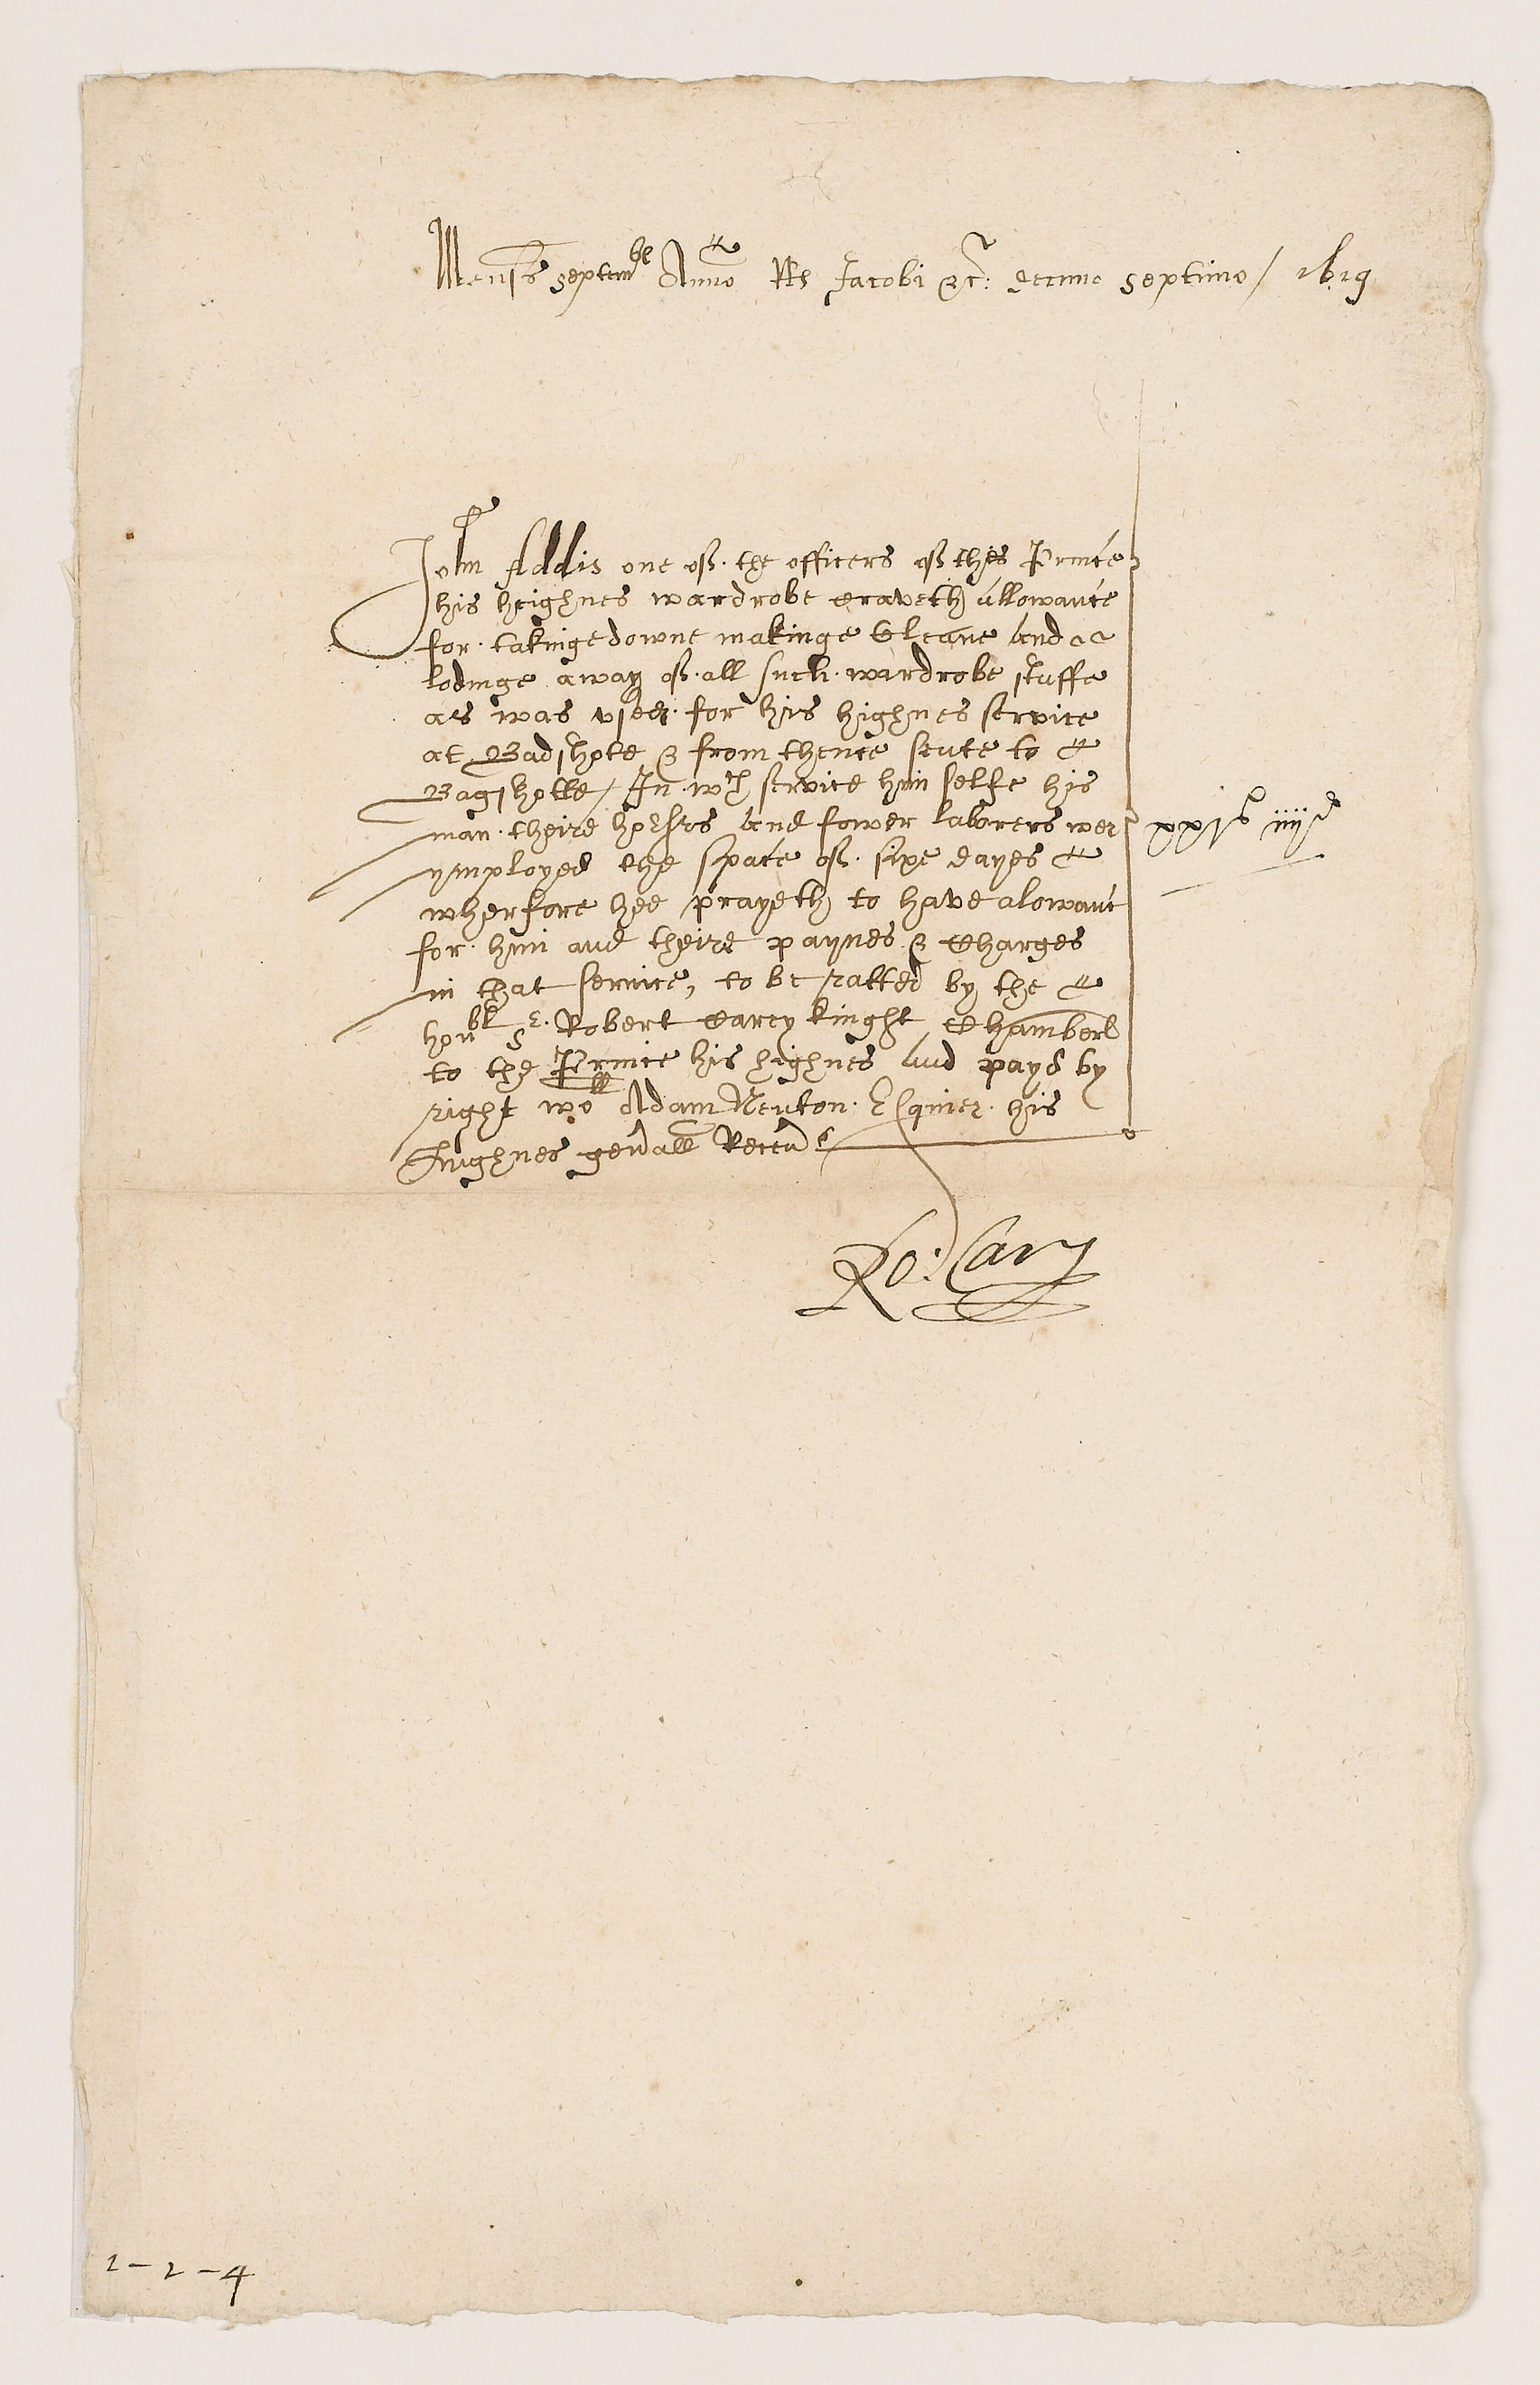 Mensis Septembr Anno Rs Jacobi &c: decimo septimo / 1619
John Addis one of the officers of thes Prince
his heighnes wardrobe craveth allowance
for takinge downe makinge Cleane and
lodinge away of all such wardrobe stuffe
as was vsed for his highnes service
at Badshote & from thence sente to
Bagshotte / In wch service him selfe his
man theire horses and fower laborers wer
ymployed the space of sixe dayes
wherfore hee prayeth to have alowanc
for him and theire paynes & Charges
in that service, to be ratted by the
honbl Sr. Robert Carey knight Chamberl
to the Prince his highnes And payd by
right wo Adam Neuton Esquier his
highnes genall Receu
xxjs iiijd
Ro: Cary
1-2-4